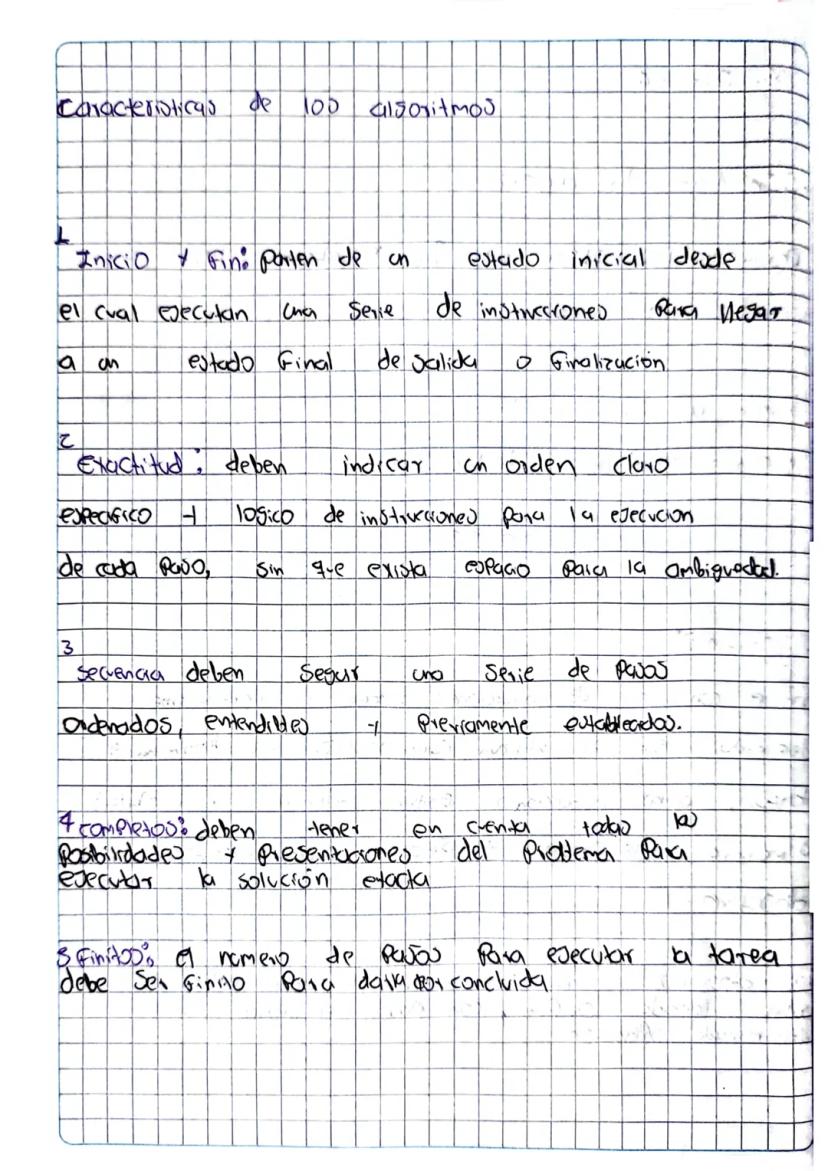 Caracteristicas de los algoritmos
1
Inicio y fin: parten de un estado inicial desde
el cual ejecutan una serie de instrucciones para llegar
a un estado final de salida o finalización
2
Exactitud: deben indicar un orden claro
especifico y logico de instrucciones para la ejecucion
de cada paso, sin que exista espacio para la ambiguedad.
3
secuencia deben seguir una serie de pasos
ordenados, entendibles y previamente establecidos.
4 completos: deben tener en cuenta todas las
posibilidades y presentaciones del problema para
ejecutar la solución exacta
5 finitos: el numero de pasos para ejecutar la tarea
debe ser finito para darla por concluida